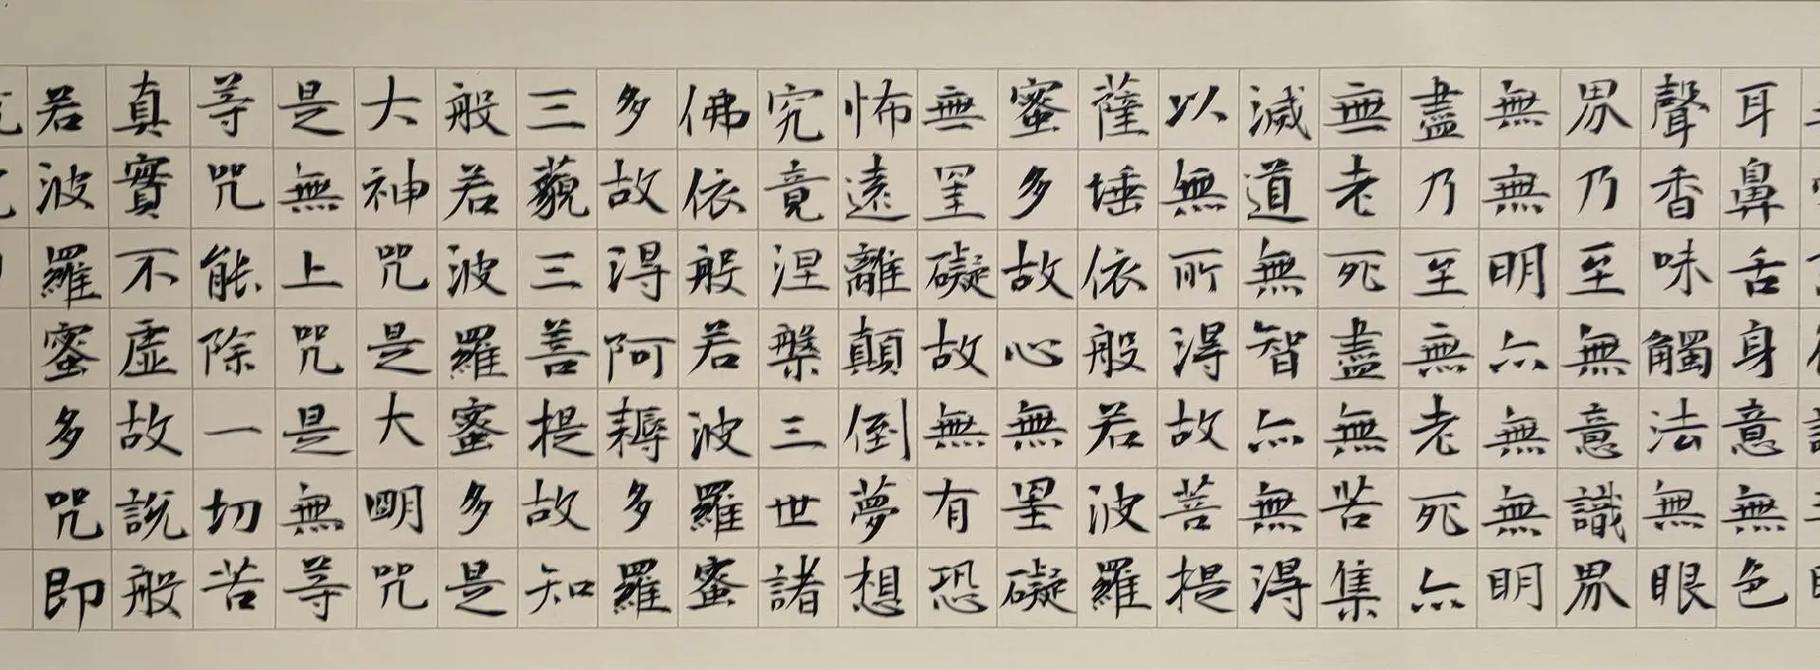 耳鼻舌身意無色
聲香味觸法無眼
界乃至無意識界
無無明亦無無明
盡乃至無老死亦
無老死盡無苦集
滅道無智亦無得
以無所得故菩提
薩埵依般若波羅
蜜多故心無罣礙
無罣礙故無有恐
怖遠離顛倒夢想
究竟涅槃三世諸
佛依般若波羅蜜
多故得阿耨多羅
三藐三善提故知
般若波羅蜜多是
大神咒是大明咒
是無上咒是無等
等咒能除一切苦
真實不虛故說般
若波羅蜜多咒即